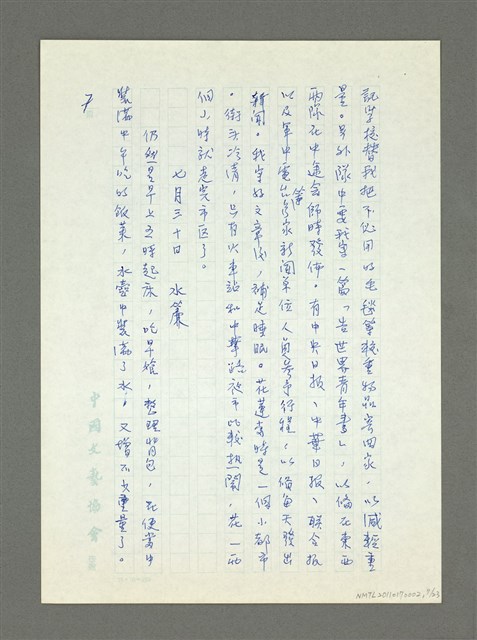 記學校替我把不必用的毛毯等較重物品寄回家，以減輕重
量。另外隊中要我寫一篇「告世界青年書」，以備在東西
兩隊在中途會師時發佈。有中央日報、中華日報、聯合報
以及軍中電台等家新聞單位人員參予行程，以備每天發出
新聞。我寫好文章後，補足睡眠。花蓮市時是一個小都市
。街頭冷清，只有火車站和中華路夜市比較熱鬧，花一兩
個小時就走完市區了。
七月三十日 水簾
仍然是早上五時起床，吃早餐，整理背包，在便當中
裝滿中午吃的飯菜，水壺中裝滿了水，又增不少重量了。
7
中國文藝協會
NMTL20110170002, 7/23